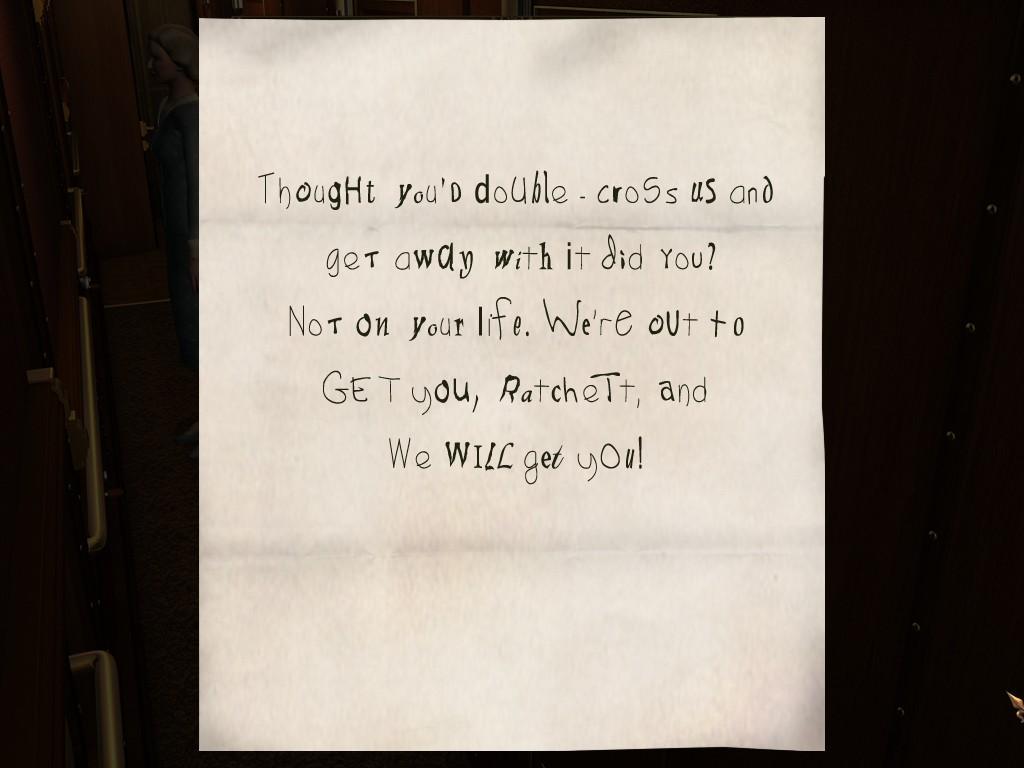 ThougHt you'D doUble - croSs uS and
geT away with it did You?
NoT on your life. We'rE oUt to
GET you, RatcheTt, and
We WILL get yOu!